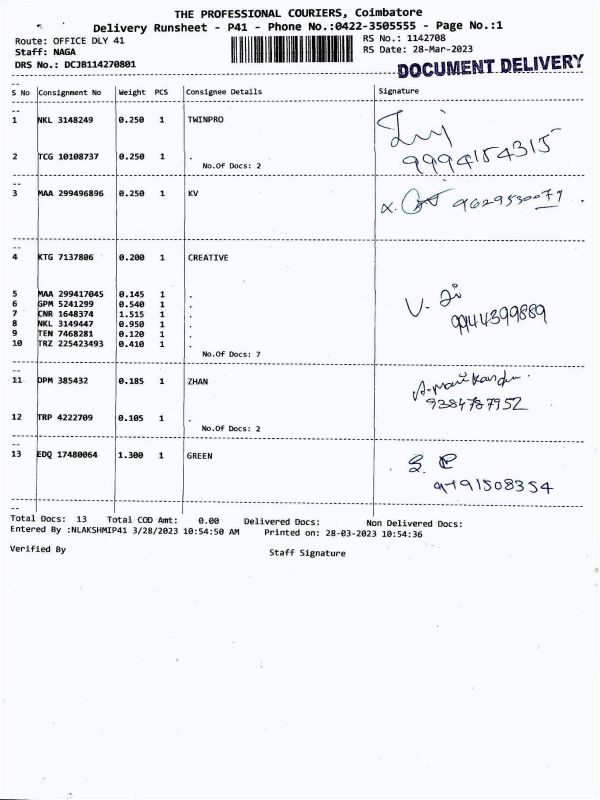 THE PROFESSIONAL COURIERS, Coimbatore
Delivery Runsheet - P41 - Phone No.:0422-3505555 - Page No.:1
Route: OFFICE DLY 41
Staff: NAGA
DRS No.: DCJB114270801
RS No.: 1142708
RS Date: 28-Mar-2023
DOCUMENT DELIVERY
S No Consignment No Weight PCS Consignee Details Signature
1 NKL 3148249 0.250 1 TWINPRO
2 TCG 10108737 0.250 1 .
9994154315
No.Of Docs: 2
3 MAA 299496896 0.250 1 KV 9629530079
4 KTG 7137806 0.200 1 CREATIVE
5 MAA 299417045 0.145 1 .
6 GPM 5241299 0.540 1 .
7 CNR 1648374 1.515 1 .
8 NKL 3149447 0.950 1 .
9 TEN 7468281 0.120 1 .
10 TRZ 225423493 0.410 1 .
9944399889
No.Of Docs: 7
11 DPM 385432 0.185 1 ZHAN
9384787952
12 TRP 4222709 0.105 1 .
No.Of Docs: 2
13 EDQ 17480064 1.300 1 GREEN
9791508354
Total Docs: 13 Total COD Amt: 0.00 Delivered Docs: Non Delivered Docs:
Entered By :NLAKSHMIP41 3/28/2023 10:54:50 AM Printed on: 28-03-2023 10:54:36
Verified By
Staff Signature